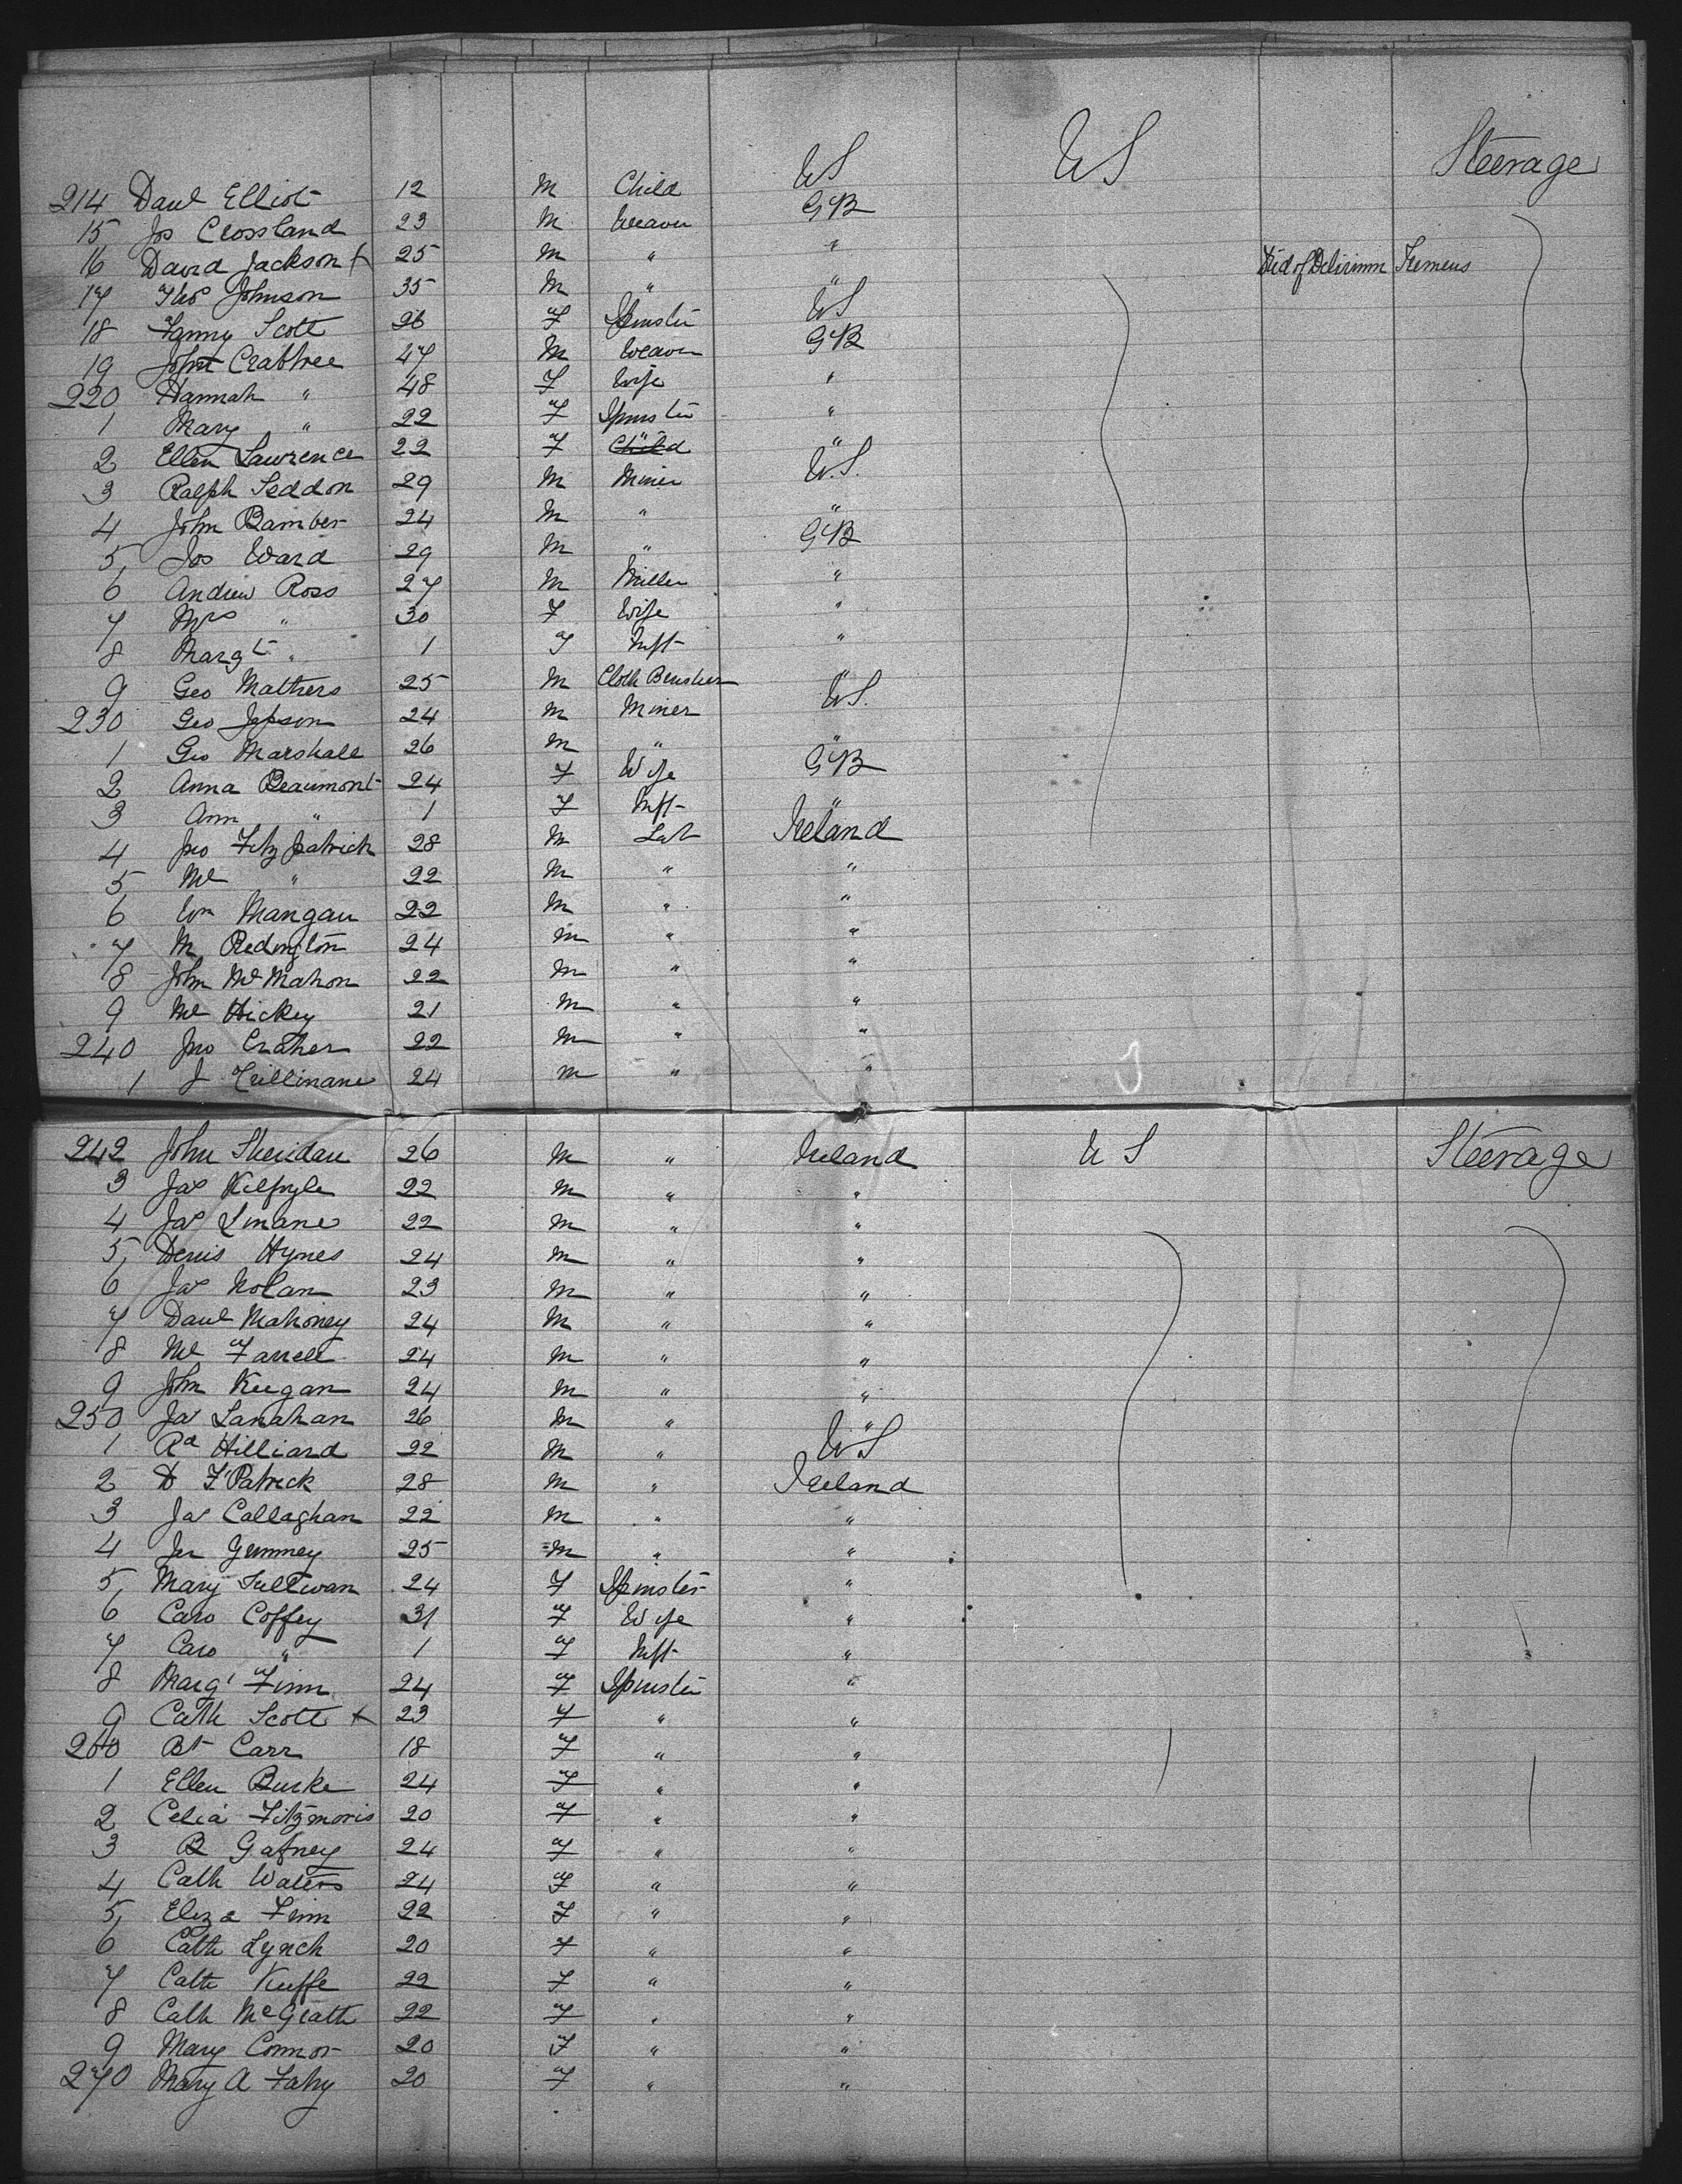 214 Danl Elliot 12 M Child US US Steerage
15 Jos Crossland 23 M Weaver GB
16 David Jackson + 25 M " " Died of Delirium Tremens
17 Thos Johnson 35 M " "
18 Fanny Scott 26 F Spinster US
19 John Crabtree 47 M Weaver GB
220 Hannah " 48 F Wife "
1 Mary " 22 F Spinster "
2 Ellen Lawrence 22 F "
3 Ralph Seddon 29 M Miner U.S.
4 John Bamber 24 M " "
5 Jos Ward 29 M " GB
6 Andrew Ross 27 M Miller "
7 Mrs " 30 F Wife "
8 Margt " 1 F Inft "
9 Geo Mathers 25 M Cloth "
230 Geo Jepson 24 M Miner US.
1 Geo Marshall 26 M " "
2 Anna Beaumont 24 F Wife GB
3 Ann " 1 F Inft "
4 Jno Fitzpatrick 28 M Lab Ireland
5 Ml " 22 M " "
6 Wm Mangan 22 M " "
7 M Redington 24 M " "
8 John McMahon 22 M " "
9 Ml Hickey 21 M " "
240 Jno Craher 22 M " "
1 J 24 M " "
242 John Sheridan 26 M " Ireland US Steerage
3 Jas 22 M " "
4 Jas Linane 22 M " "
5 Denis Hynes 24 M " "
6 Jas Nolan 23 M " "
7 Danl Mahoney 24 M " "
8 Ml Farrell 24 M " "
9 John Keegan 24 M " "
250 Jas Lanahan 26 M " "
1 Rd Hilliard 22 M " US
2 D F'Patrick 28 M " Ireland
3 Jas Callaghan 22 M " "
4 Jer 25 M " "
5 Mary Sullivan 24 F Spinster "
6 Caro Coffey 31 F Wife "
7 Caro " 1 F Inft "
8 Margt Finn 24 F Spinster "
9 Cath Scott + 23 F " "
260 Bt Carr 18 F " "
1 Ellen Burke 24 F " "
2 Celia Fitzmoris 20 F " "
3 B Gafney 24 F " "
4 Cath Waters 24 F " "
5 Eliza Finn 22 F " "
6 Cath Lynch 20 F " "
7 Cath Keeffe 22 F " "
8 Cath McGrath 22 F " "
9 Mary Connor 20 F " "
270 Mary A Fahy 20 F " "